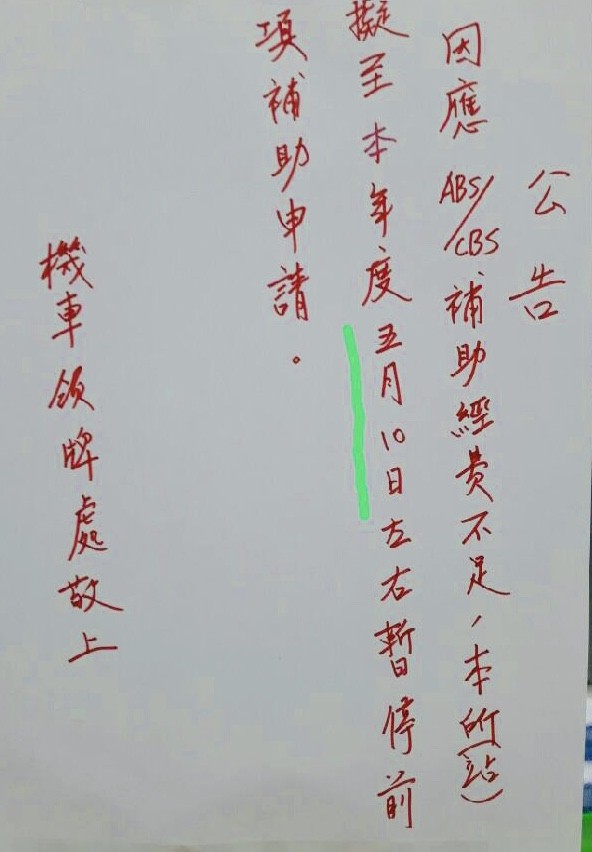 公告
因應ABS/CBS補助經費不足,本所(站)
擬至本年度五月10日左右暫停前
項補助申請。
機車領牌處敬上